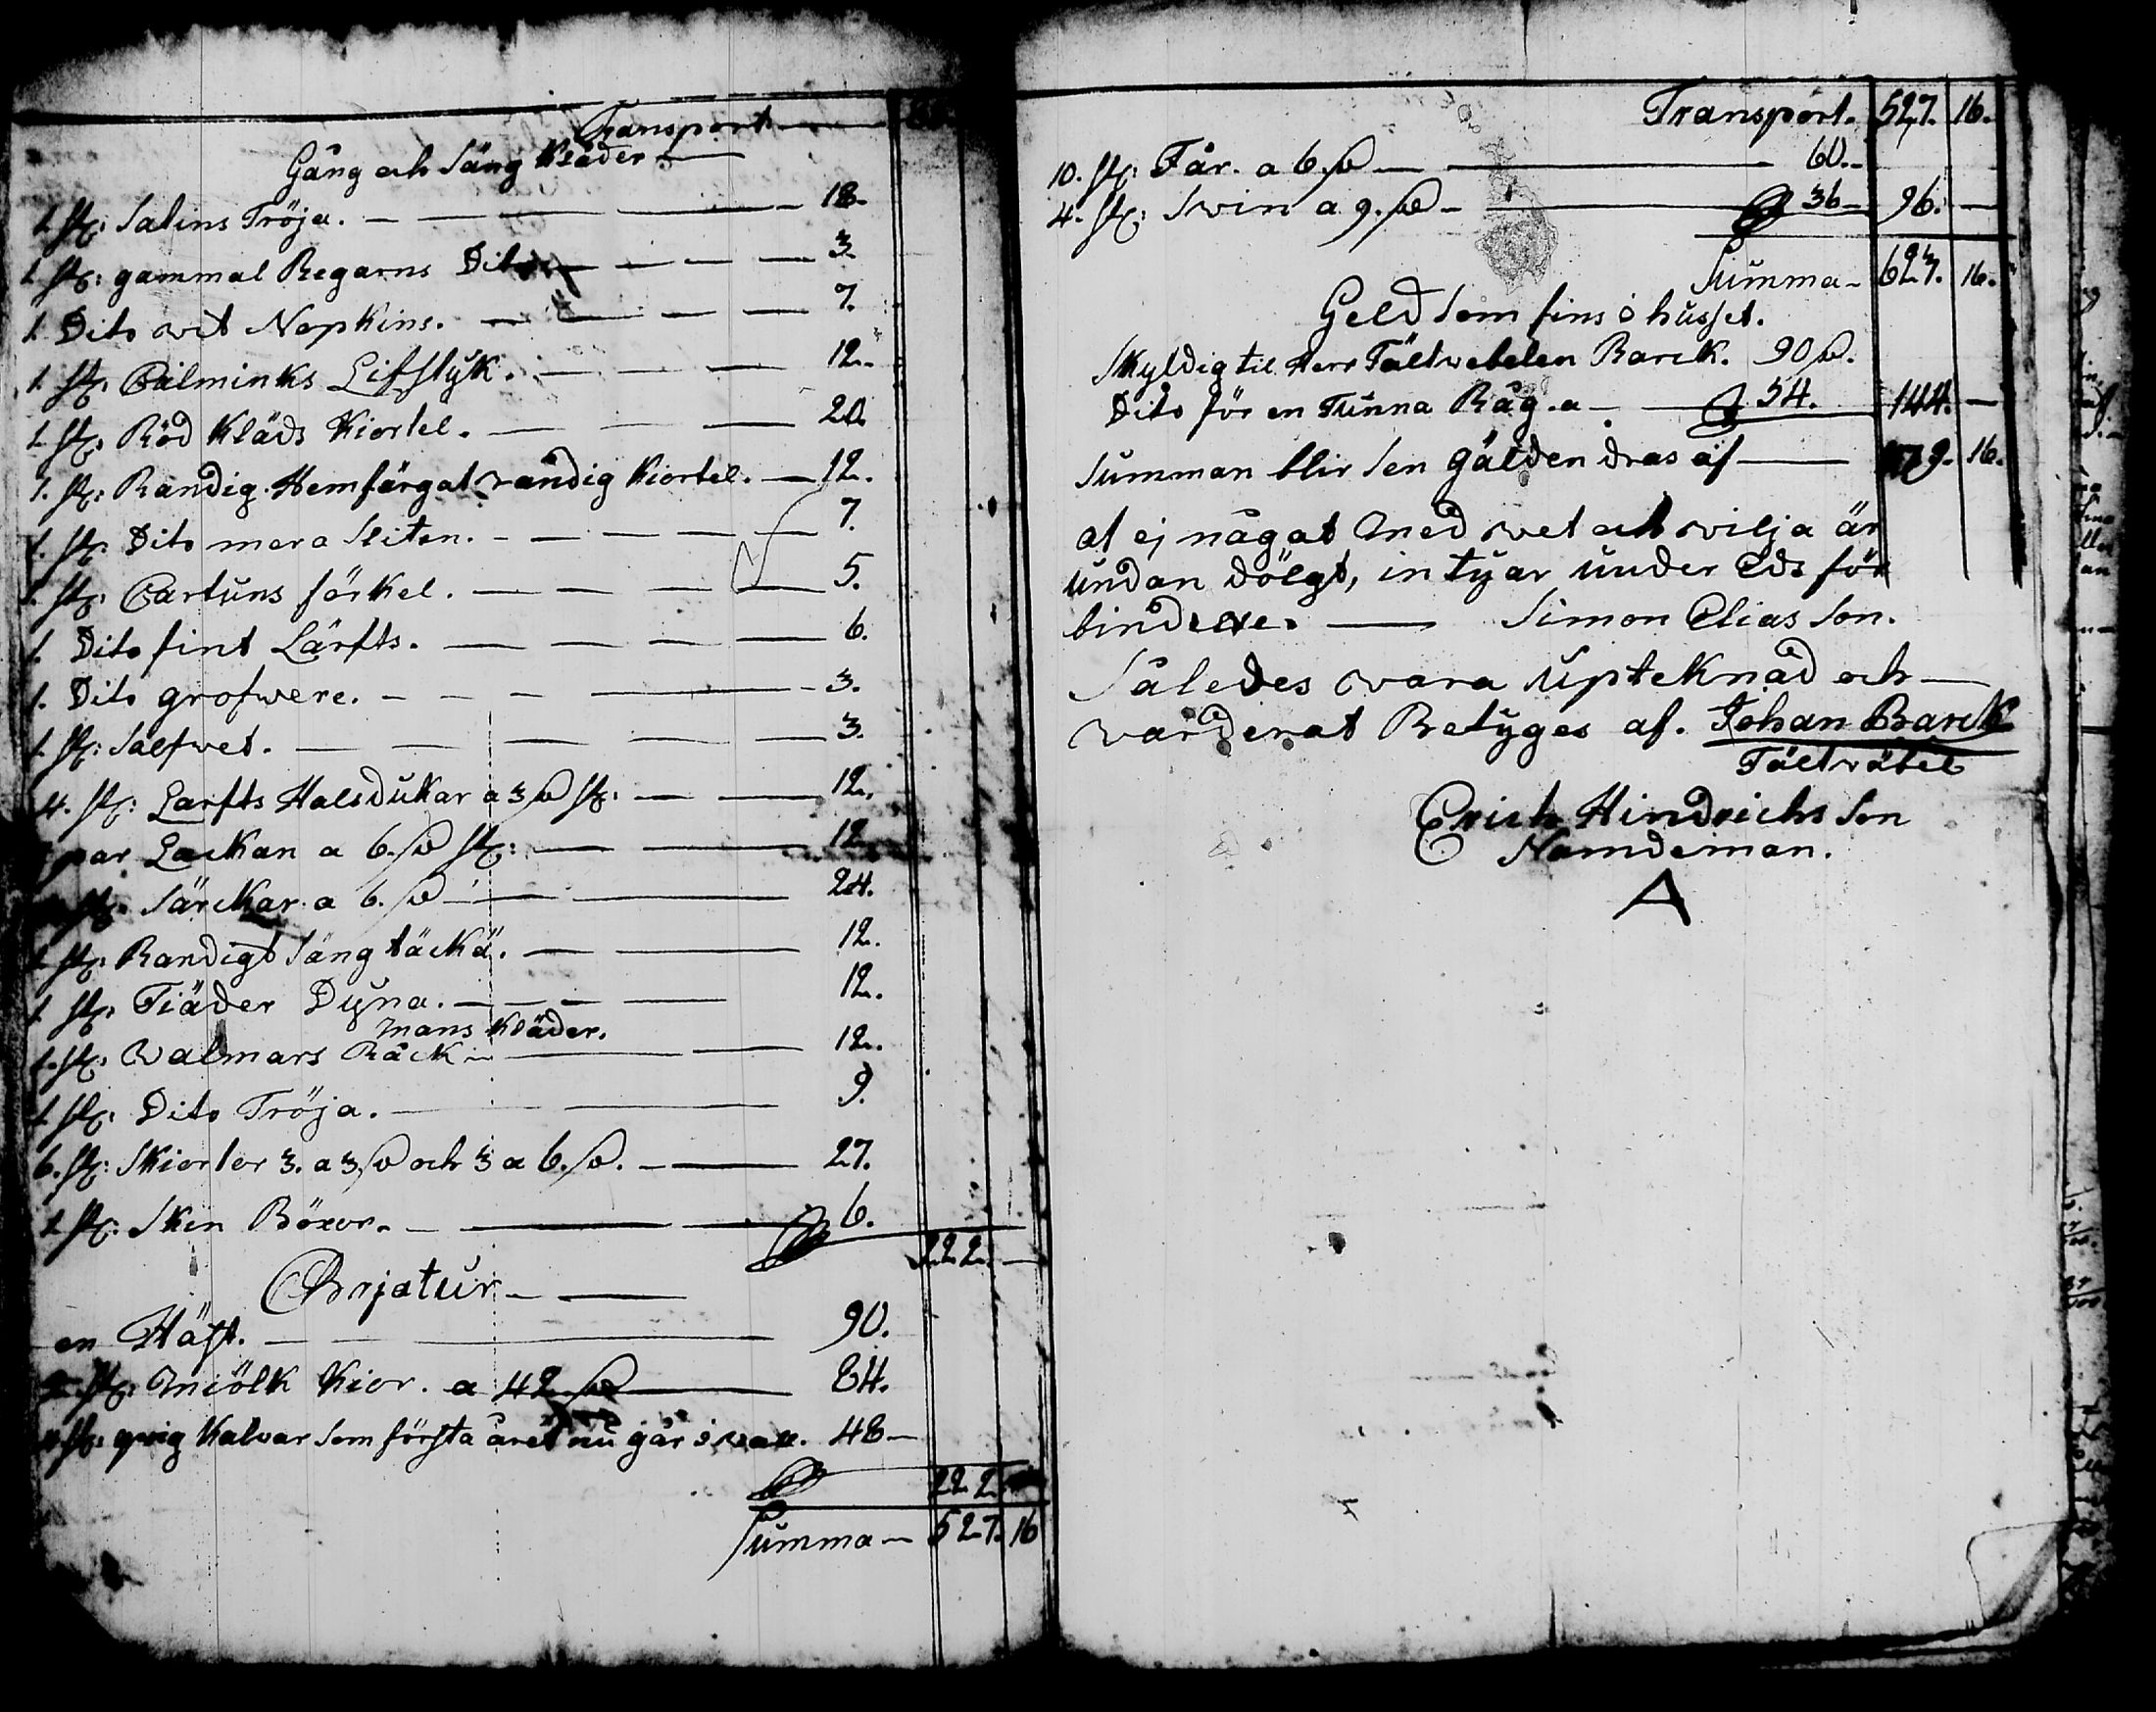 Transport
Gång och Säng Kläder
1. st: Satins Tröja. 18
1 st: gammal Regarns Dito 3.
1. Dito wit Napkins. 7.
1. st: Calminks Lifstyk. 12.
1. st: Röd Kläds Kiortel. 20.
1. st: Randig Hemfärgat randig Kiortel. 12.
1. st: Dito mera Sliten. 7.
1. st: Cartuns förkel. 5.
1. Dito fint Lärfts. 6.
1. Dito grofwere. 3.
1. st: Salfwet. 3.
4. st: Larfts Halsdukar a 3 D st: 12.
par Lackan a 6. D st: 12
Särckar a 6. D 24.
1 st: Randigt Säng täckä. 12.
1 st: Fiäder Dyna. 12.
Mans Kläder.
1. st: Walmars Råck 12.
1 st: Dito Tröja. 9.
6. st: Skiortor 3. a 3 D och 3 a 6. D. 27.
1 st: Sken Böxor. 6.
222.
Chrjatur
en Häst. 90.
2 st: Miölk Kior. a 42 D 84.
st: Kalvar som första året nu går i wall. 48
222
Summa 527. 16
Transport. 527. 16.
10. st: Får. a 6 D 60.
4. st: Swin a 9. D 36 96.
Summa 623. 16.
Geld som fins i husset.
Skyldig til Herr Fältwebelen Barck. 90 D.
Dito för en Tunna Råg. a 54. 144.
Summan blir sen gälden dras af 479. 16.
at ej någat med wet och wilja är
undan dölgt, intyar under Eds för
bindelse. Simon Elias Son.
Således wara upteknad och
warderat Betyges af. Johan Barck
Fältwäbel
Erich Hindrichs Son
Namdeman.
A